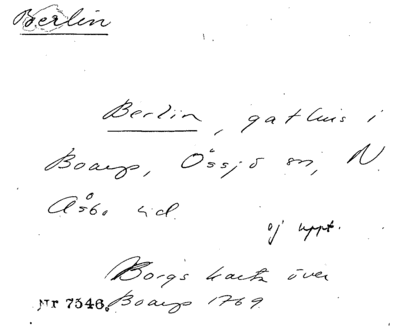 Berlin
Berlin, gathus i
Boarp, Össjö sn, N.
Åsbo hd.
ej uppt.
Borgs karta över
Nr 7546. Boarp 1769